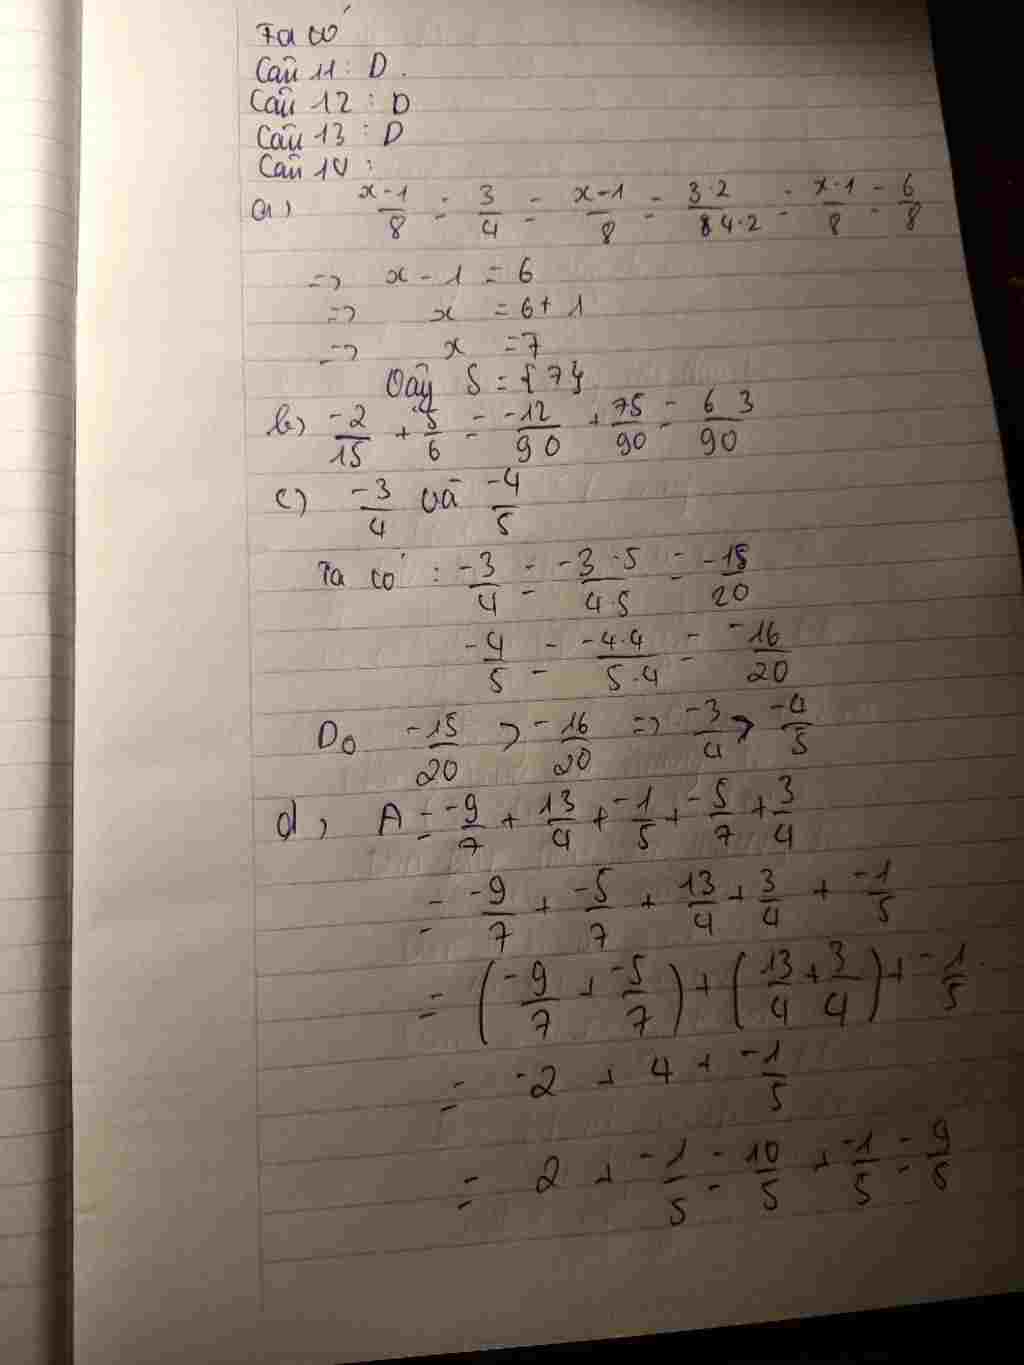 Ta có
Câu 11: D.
Câu 12: D
Câu 13: D
Câu 14:
a) x-1/8 = 3/4 = x-1/8 = 3·2/4·2 = x-1/8 = 6/8
=> x - 1 = 6
=> x = 6 + 1
=> x = 7
Vậy S = {7}
b) -2/15 + 5/6 = -12/90 + 75/90 = 63/90
c) -3/4 và -4/5
Ta có: -3/4 = -3·5/4·5 = -15/20
-4/5 = -4·4/5·4 = -16/20
Do -15/20 > -16/20 => -3/4 > -4/5
d, A = -9/7 + 13/4 + -1/5 + -5/7 + 3/4
= -9/7 + -5/7 + 13/4 + 3/4 + -1/5
= (-9/7 + -5/7) + (13/4 + 3/4) + -1/5
= -2 + 4 + -1/5
= 2 + -1/5 = 10/5 + -1/5 = 9/5